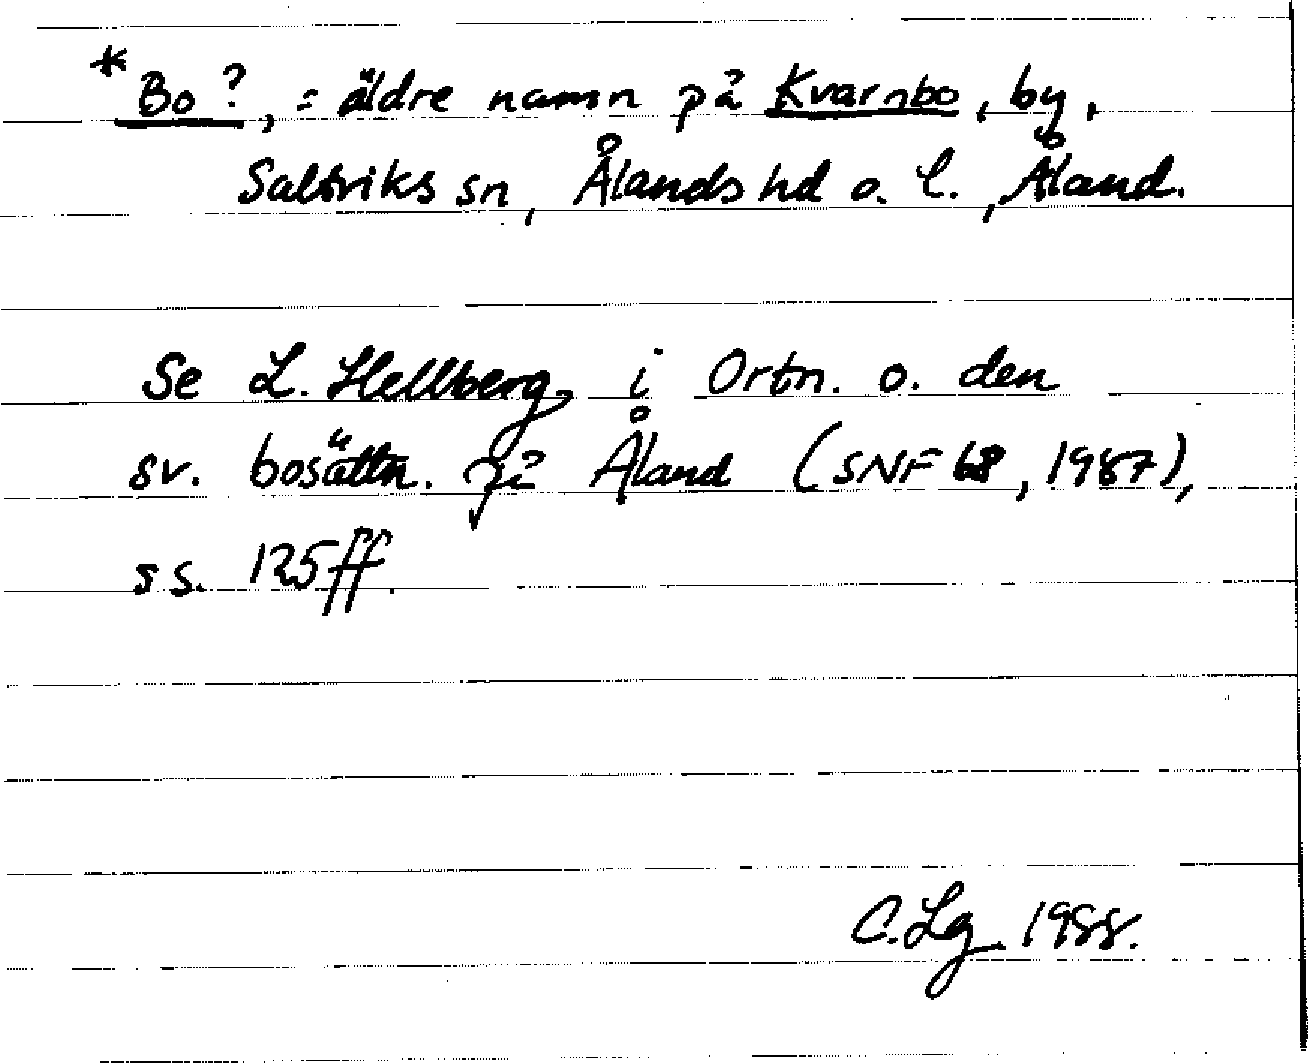 *Bo?, = äldre namn på Kvarnbo, by,
Saltviks sn, Ålands hd o. l., Åland.
Se L. Hellberg, i Ortn. o. den
sv. bosättn. på Åland (SNF 68, 1987),
ss. 125ff.
C. Lg. 1988.